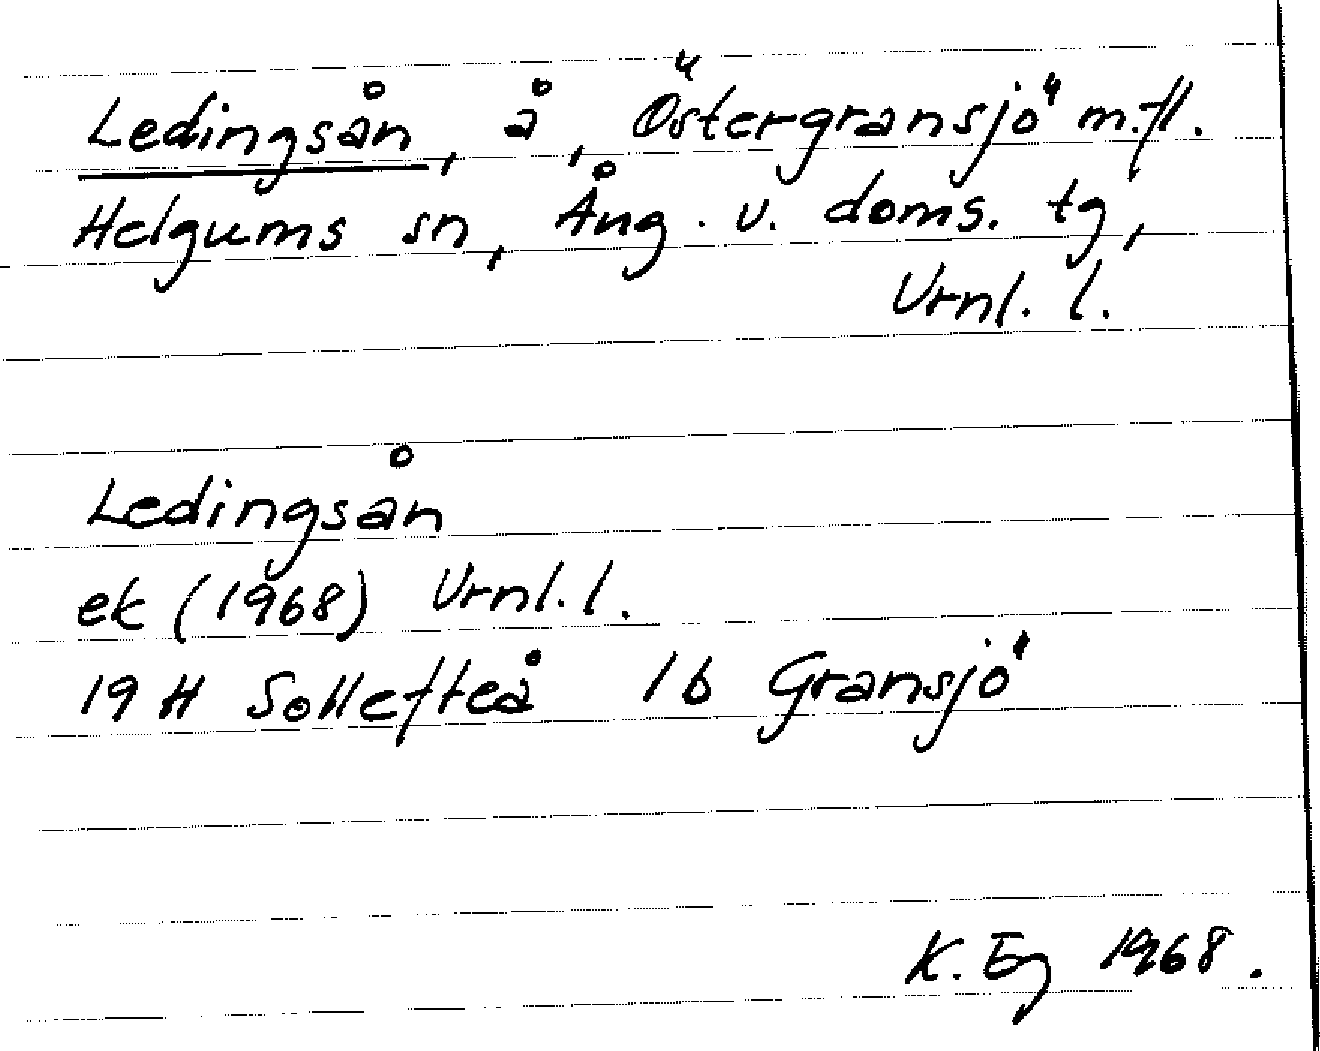 Ledingsån, å, Östergransjö m.fl.
Helgums sn, Ång. v. doms. tg,
Vrnl. l.
Ledingsån
ek (1968) Vrnl. l.
19 H Sollefteå 1b Gransjö
K. Eg 1968.